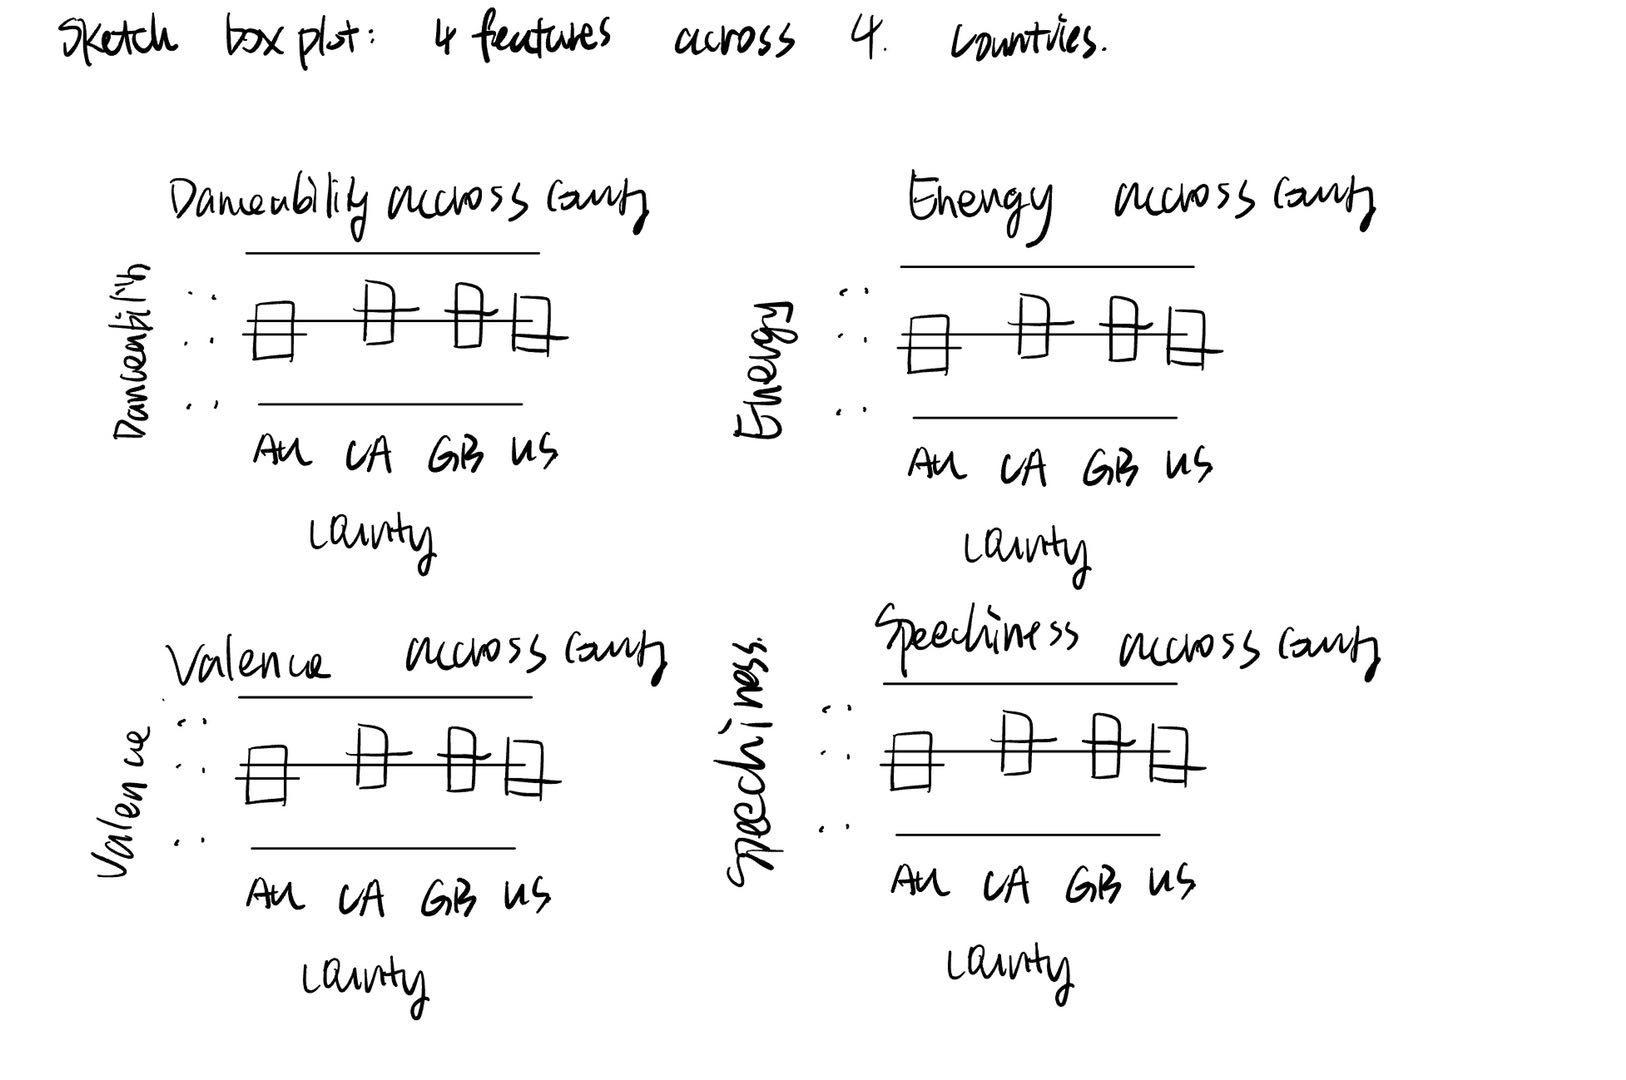 Sketch box plot: 4 features across 4. countries.
Danceability accross county
Danceability
AU CA GB US
county
Energy accross county
Energy
AU CA GB US
county
Valence accross county
Valence
AU CA GB US
county
Speechiness accross county
Speechiness.
AU CA GB US
county